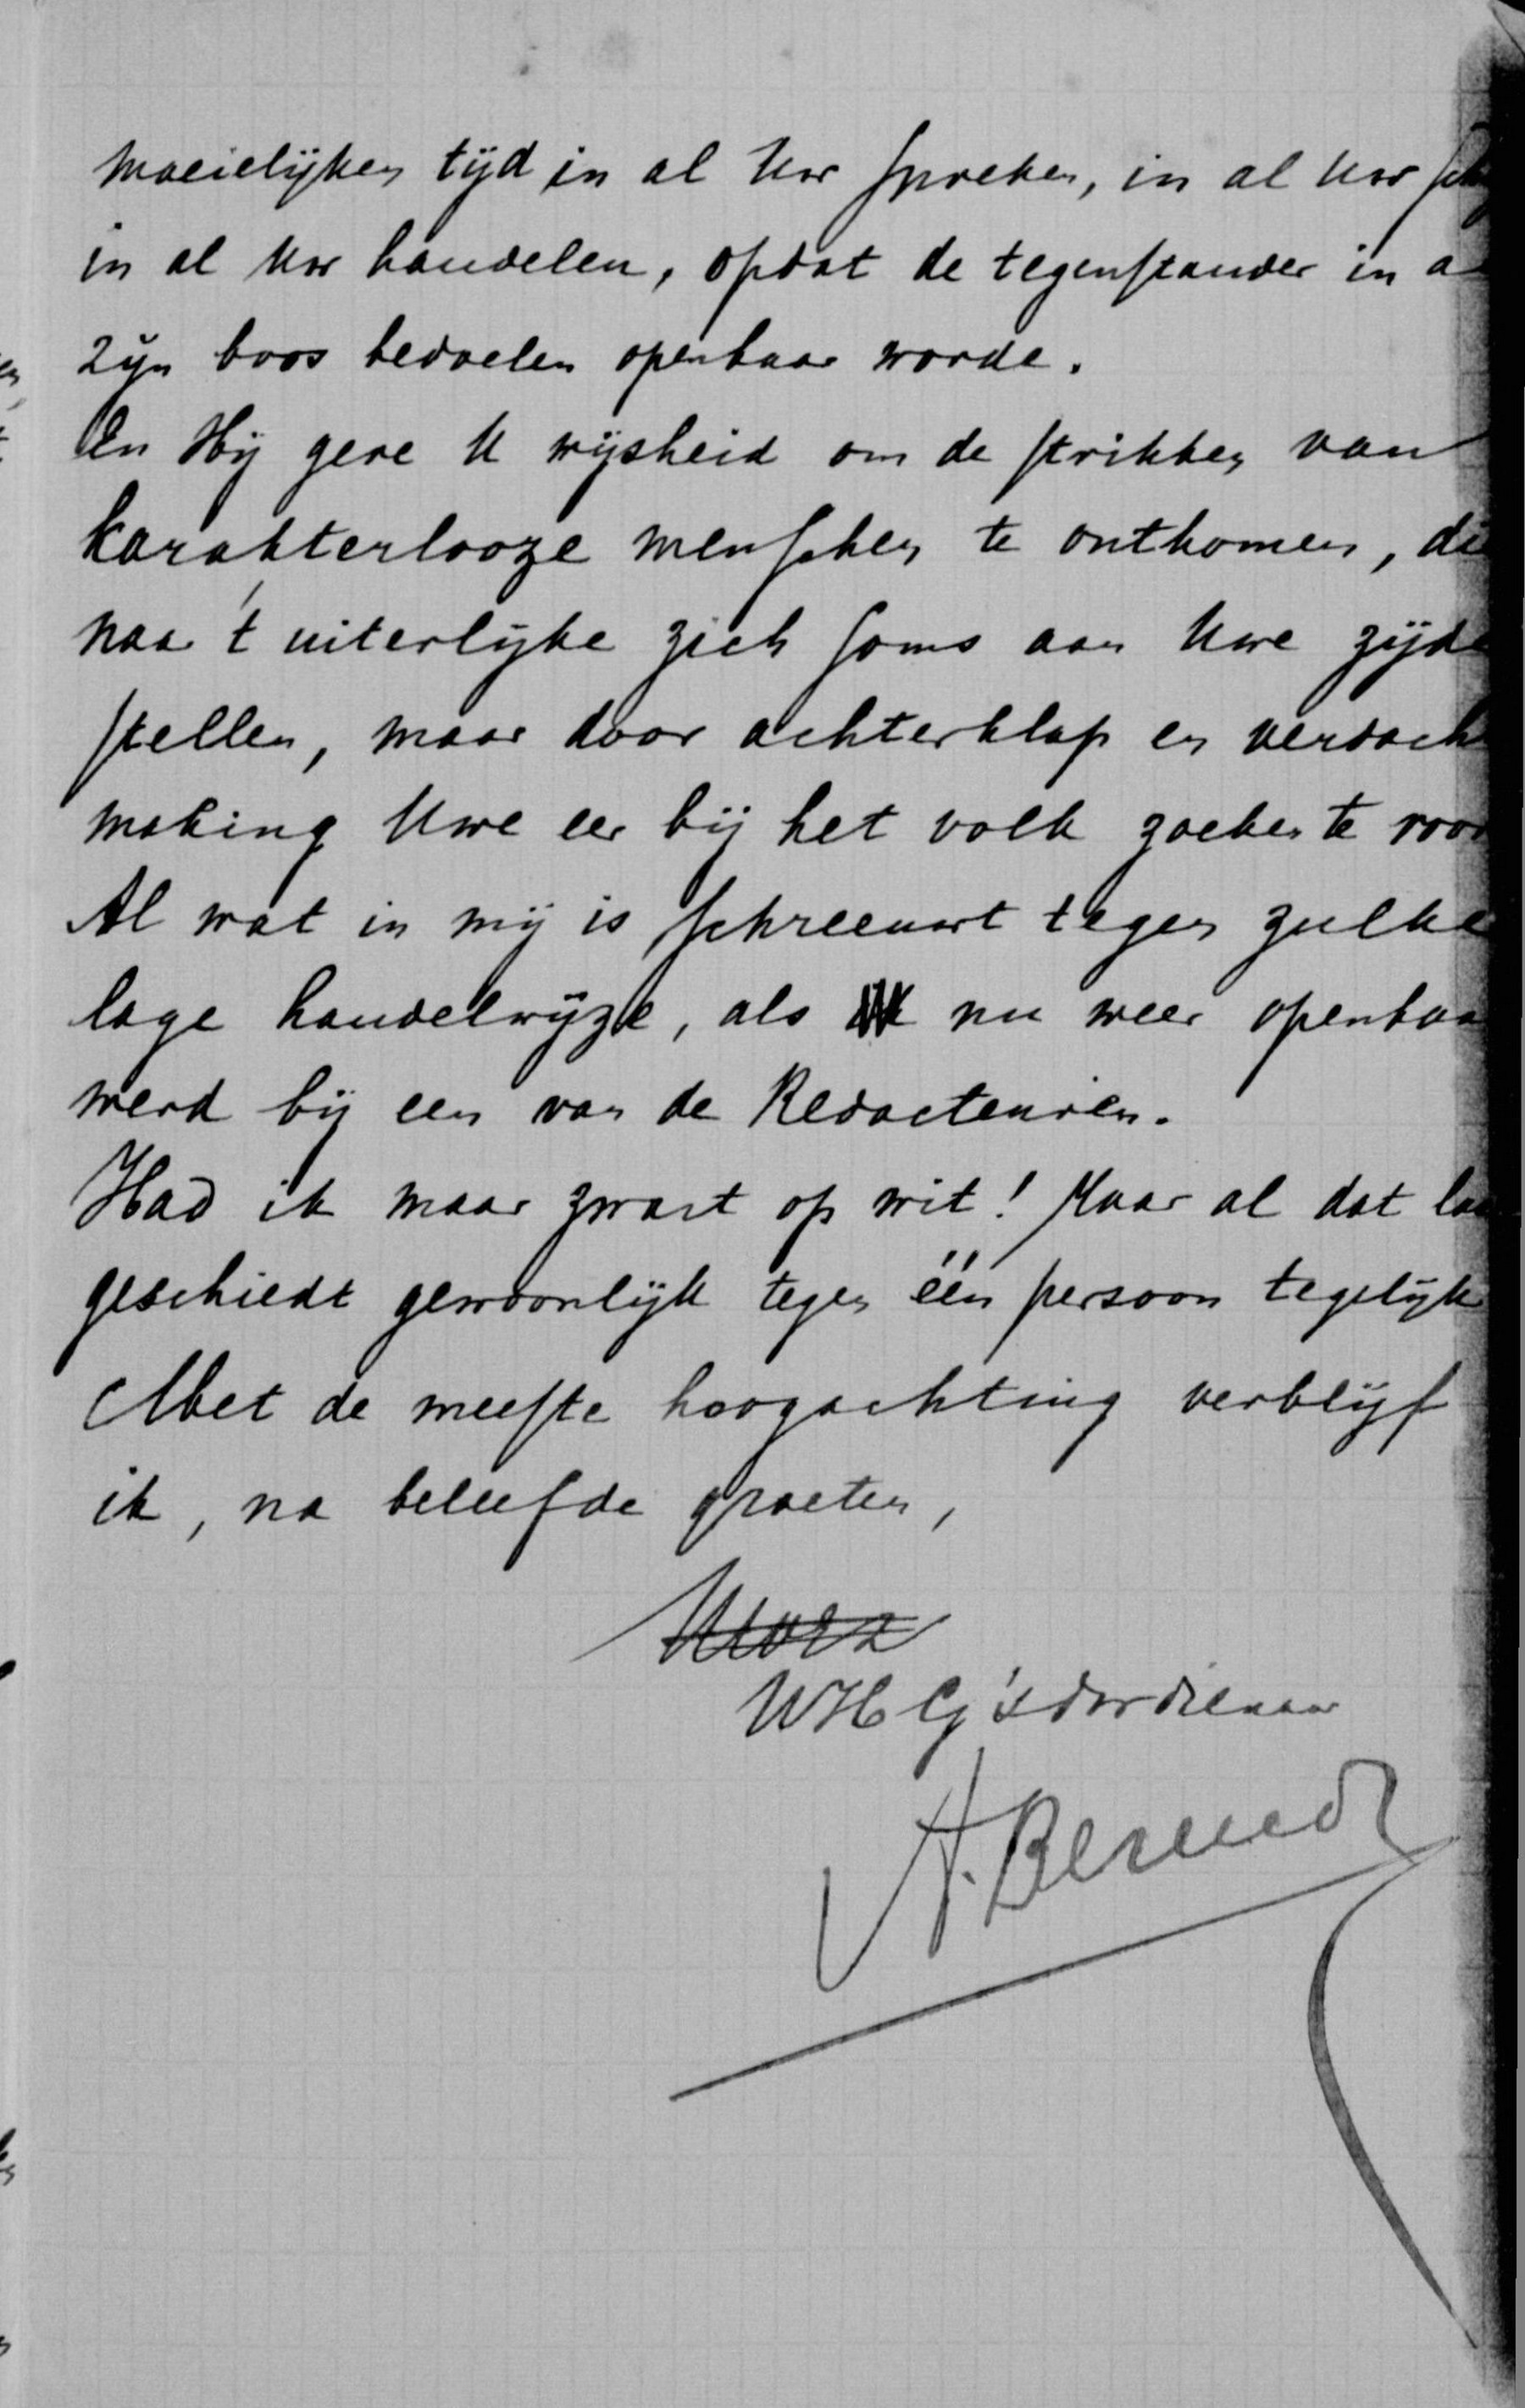 moeielijken tijd in al Uw spreken, in al Uw sch
in al Uw handelen, opdat de tegenstander in a
zijn boos bedoelen openbaar worde.
En Hij geve U wijsheid om de strikken van
karakterlooze menschen te ontkomen, di
naar 't uiterlijke zich soms aan Uwe zijde
stellen, maar door achterklap en verdach
making Uwe eer bij het volk zoeken te roov
Al wat in mij is schreeuwt tegen zulke
lage handelwijze, als nu weer openbaa
werd bij een van de Redacteuren.
Had ik maar zwart op wit! Maar al dat la
geschiedt gewoonlijk tegen één persoon tegelijk
Met de meeste hoogachting verblijf
ik, na beleefde groeten,
UHEG's dw dienaar
A. Berends